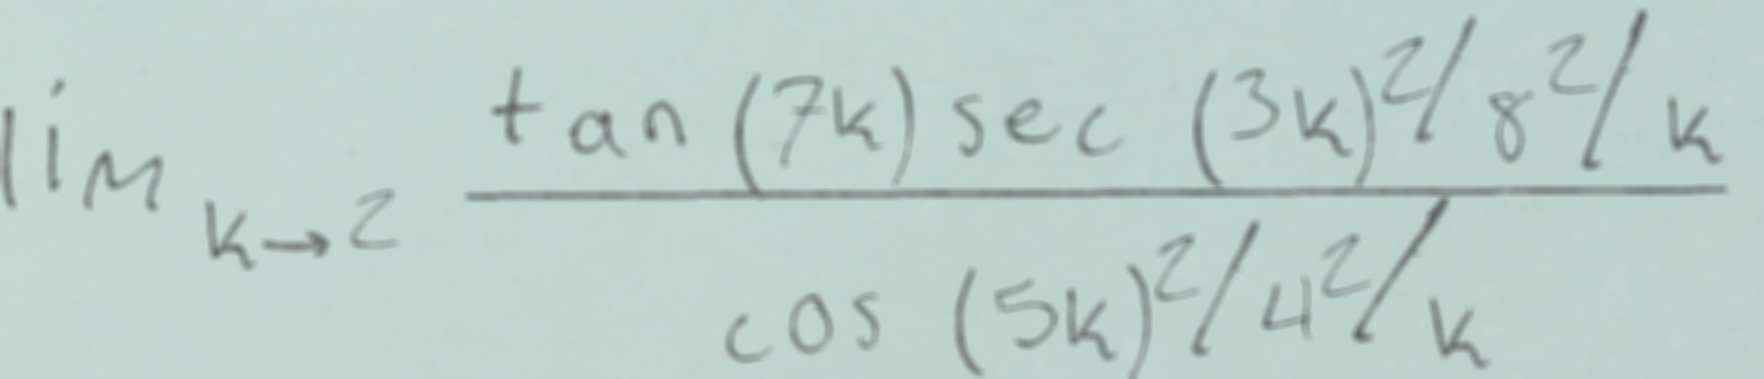 lim k→2 tan (7k) sec (3k)²/8²/k
cos (5k)²/4²/k